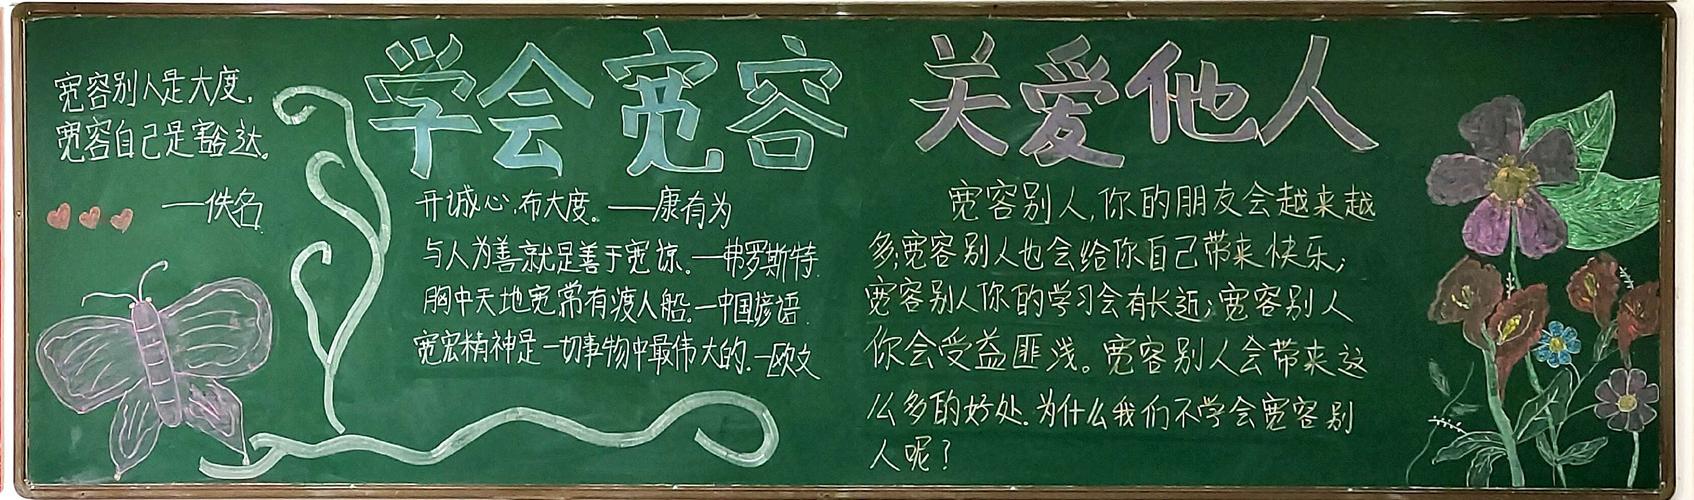 学会宽容 关爱他人
宽容别人是大度,
宽容自己是豁达。
—佚名
开诚心,布大度。—康有为
与人为善就是善于宽谅。—弗罗斯特.
胸中天地宽常有渡人船.—中国谚语.
宽宏精神是一切事物中最伟大的.—欧文
宽容别人,你的朋友会越来越
多;宽容别人也会给你自己带来快乐;
宽容别人你的学习会有长近;宽容别人
你会受益匪浅。宽容别人会带来这
么多的好处.为什么我们不学会宽容别
人呢?